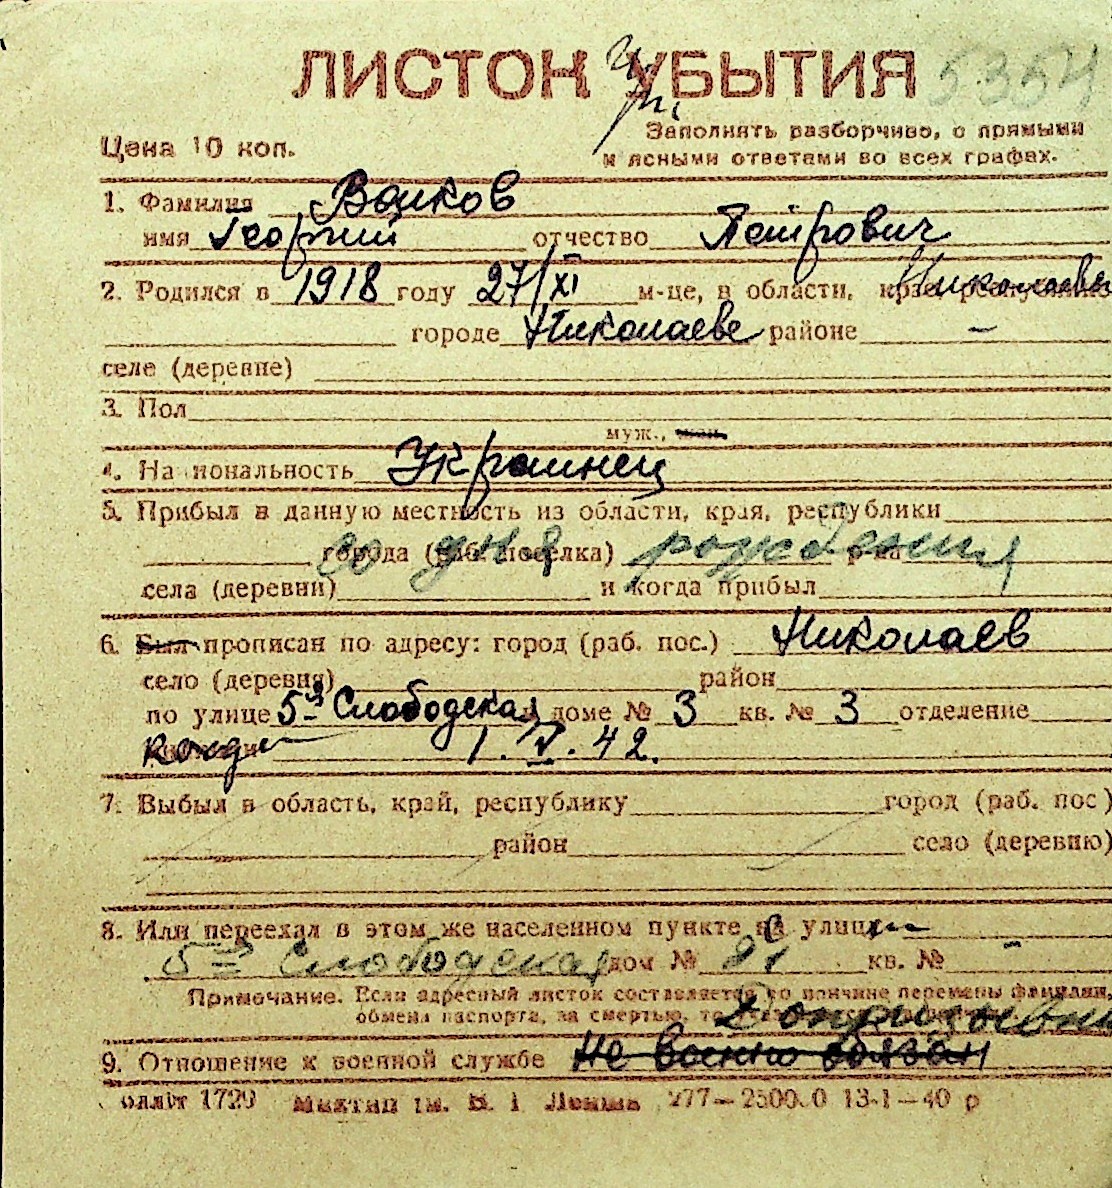 ЛИСТОК УБЫТИЯ 5354
Цена 10 коп.
Заполнять разборчиво, с прямыми
и ясными ответами во всех графах.
1. Фамилия Волков
имя Георгий отчество Петрович
2. Родился в 1918 году 27/XI м-це, в области, края, республике Николаевск
городе Николаеве районе –
селе (деревне)
3. Пол
муж., жен.
4. Национальность Украинец
5. Прибыл в данную местность из области, края, республики
города (раб. поселка) со дня рождения р-на
села (деревни) и когда прибыл
6. Был прописан по адресу: город (раб. пос.) Николаев
село (деревня) район
по улице 5-я Слободская доме № 3 кв. № 3 отделение
когда 1.V.42.
7. Выбыл в область, край, республику город (раб. пос)
район село (деревню)
8. Или переехал в этом же населенном пункте на улицу
5-я Слободская дом № кв. № –
Примечание. Если адресный листок составляется по причине перемены фамилии,
обмена паспорта, за смертью, то
9. Отношение к военной службе Не военно обязан
олліт 1729 им. В. І Леніна 277–2500.0 13-1–40 р